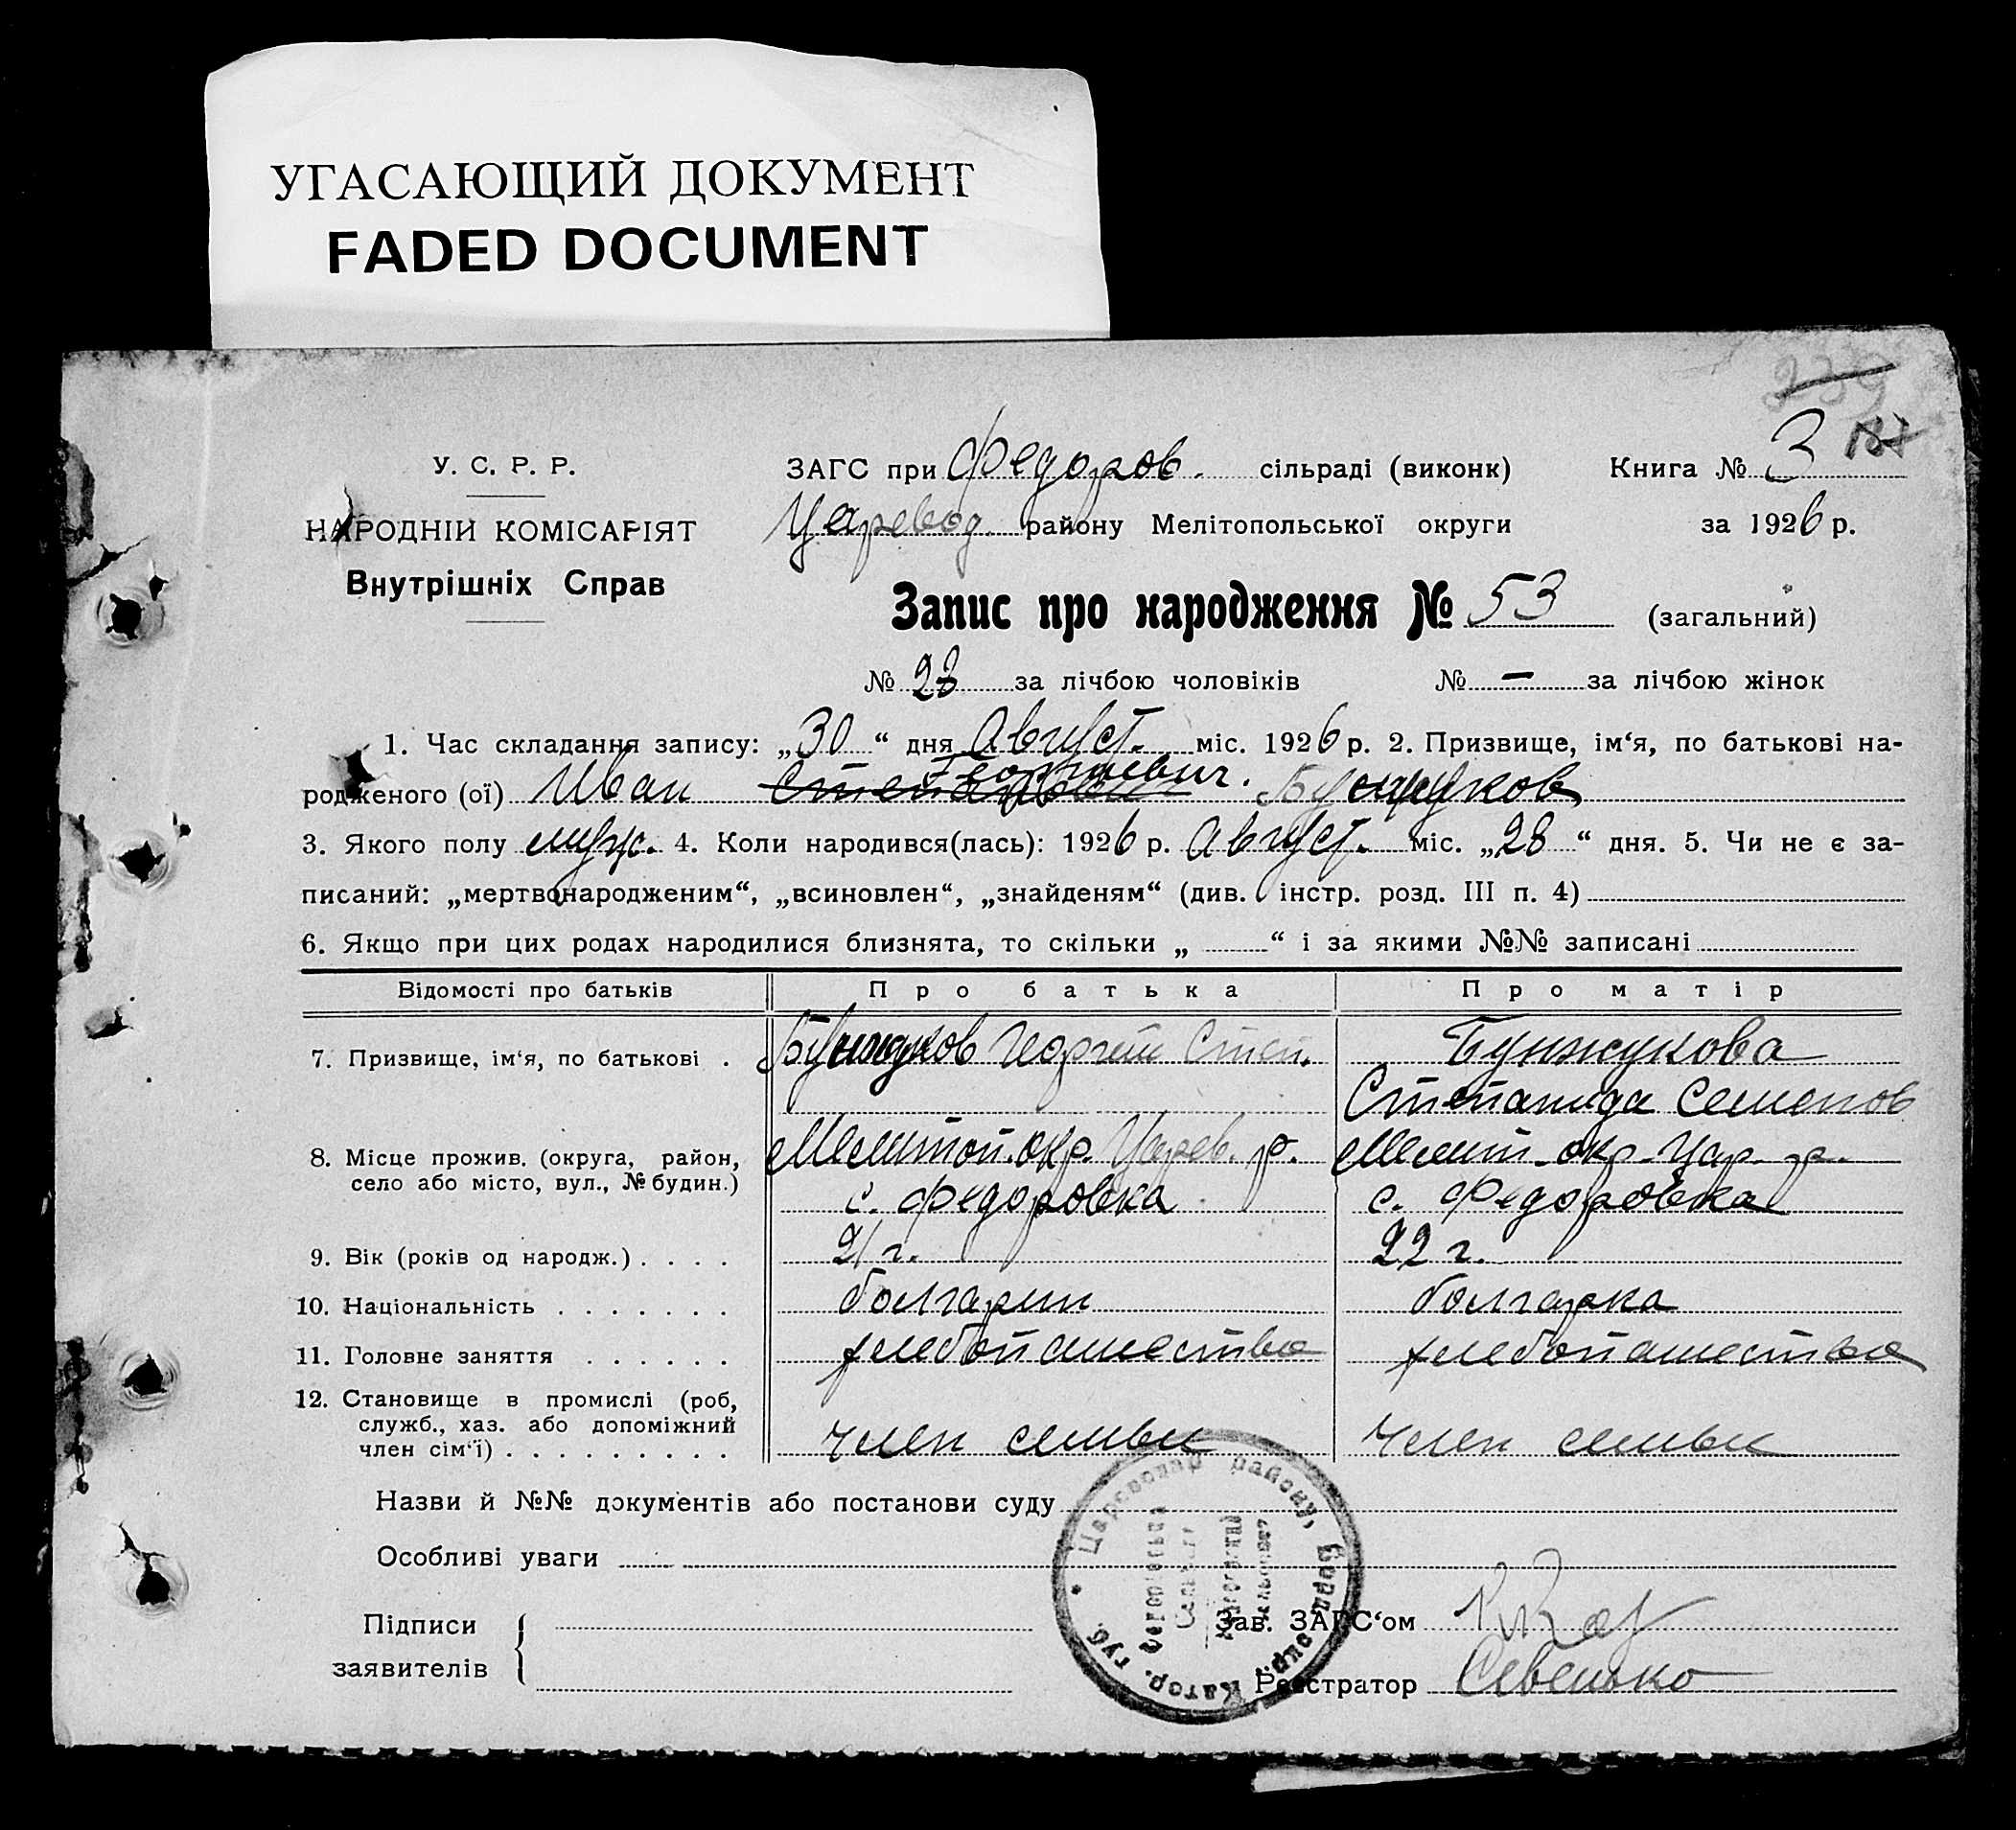 УГАСАЮЩИЙ ДОКУМЕНТ
FADED DOCUMENT
239
У. С. Р. Р.
ЗАГС при Федоров. сільраді (виконк) Книга № 3 187
НАРОДНІЙ КОМІСАРІЯТ
Царевод. району Мелітопольської округи за 1926 р.
Внутрішніх Справ
Запис про народження № 53 (загальний)
№ 28 за лічбою чоловіків № — за лічбою жінок
1. Час складання запису: „30“ дня Август. міс. 1926 р. 2. Призвище, ім‘я, по батькові на-
Георгиевич.
родженого (ої) Иван Степанович Бунжуков
3. Якого полу муж. 4. Коли народився(лась): 1926 р. Август. міс. „28“ дня. 5. Чи не є за-
писаний: „мертвонародженим“, „всиновлен“, „знайденям“ (див. інстр. розд. III п. 4)
6. Якщо при цих родах народилися близнята, то скільки „ “ і за якими №№ записані
Відомості про батьків Про батька Про матір
7. Призвище, ім‘я, по батькові . Бунжуков Георгий Степ. Бунжукова
Степанида Семенов
8. Місце прожив. (округа, район, Мелитоп. окр. Царев. р. Мелит. окр. Цар. р.
село або місто, вул., № будин.) с. Федоровка с. Федоровка
9. Вік (років од народж.) . . . . 21 г. 22 г.
10. Національність . . . . . . . болгарин болгарка
11. Головне заняття . . . . . . хлебопашество хлебопашество
12. Становище в промислі (роб,
служб., хаз. або допоміжний
член сім‘ї) . . . . . . . . . член семьи член семьи
Назви й №№ документів або постанови суду
Особливі уваги
Підписи
заявителів
Зав. ЗАГС‘ом
Реєстратор Севенько
Царевовдар району, окр. Катор. губ.